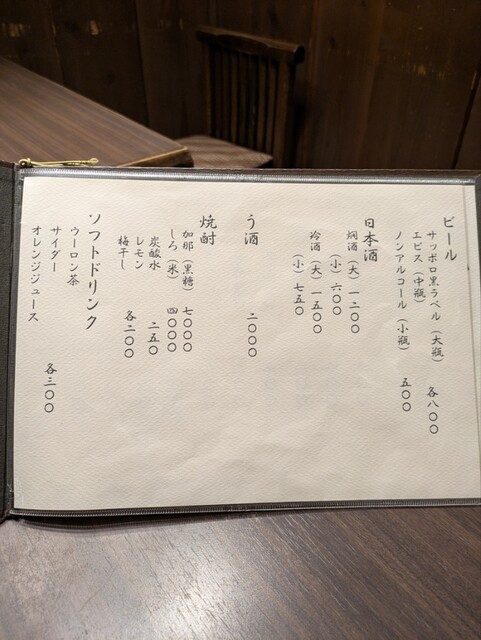 ビール
サッポロ黒ラベル（大瓶）
エビス（中瓶） 各八〇〇
ノンアルコール（小瓶） 五〇〇
日本酒
燗酒（大）一二〇〇
（小）六〇〇
冷酒（大）一五〇〇
（小）七五〇
う酒 二〇〇〇
焼酎
加那（黒糖）七〇〇〇
しろ（米）四〇〇〇
炭酸水 二五〇
レモン
梅干し 各二〇〇
ソフトドリンク
ウーロン茶
サイダー
オレンジジュース 各三〇〇